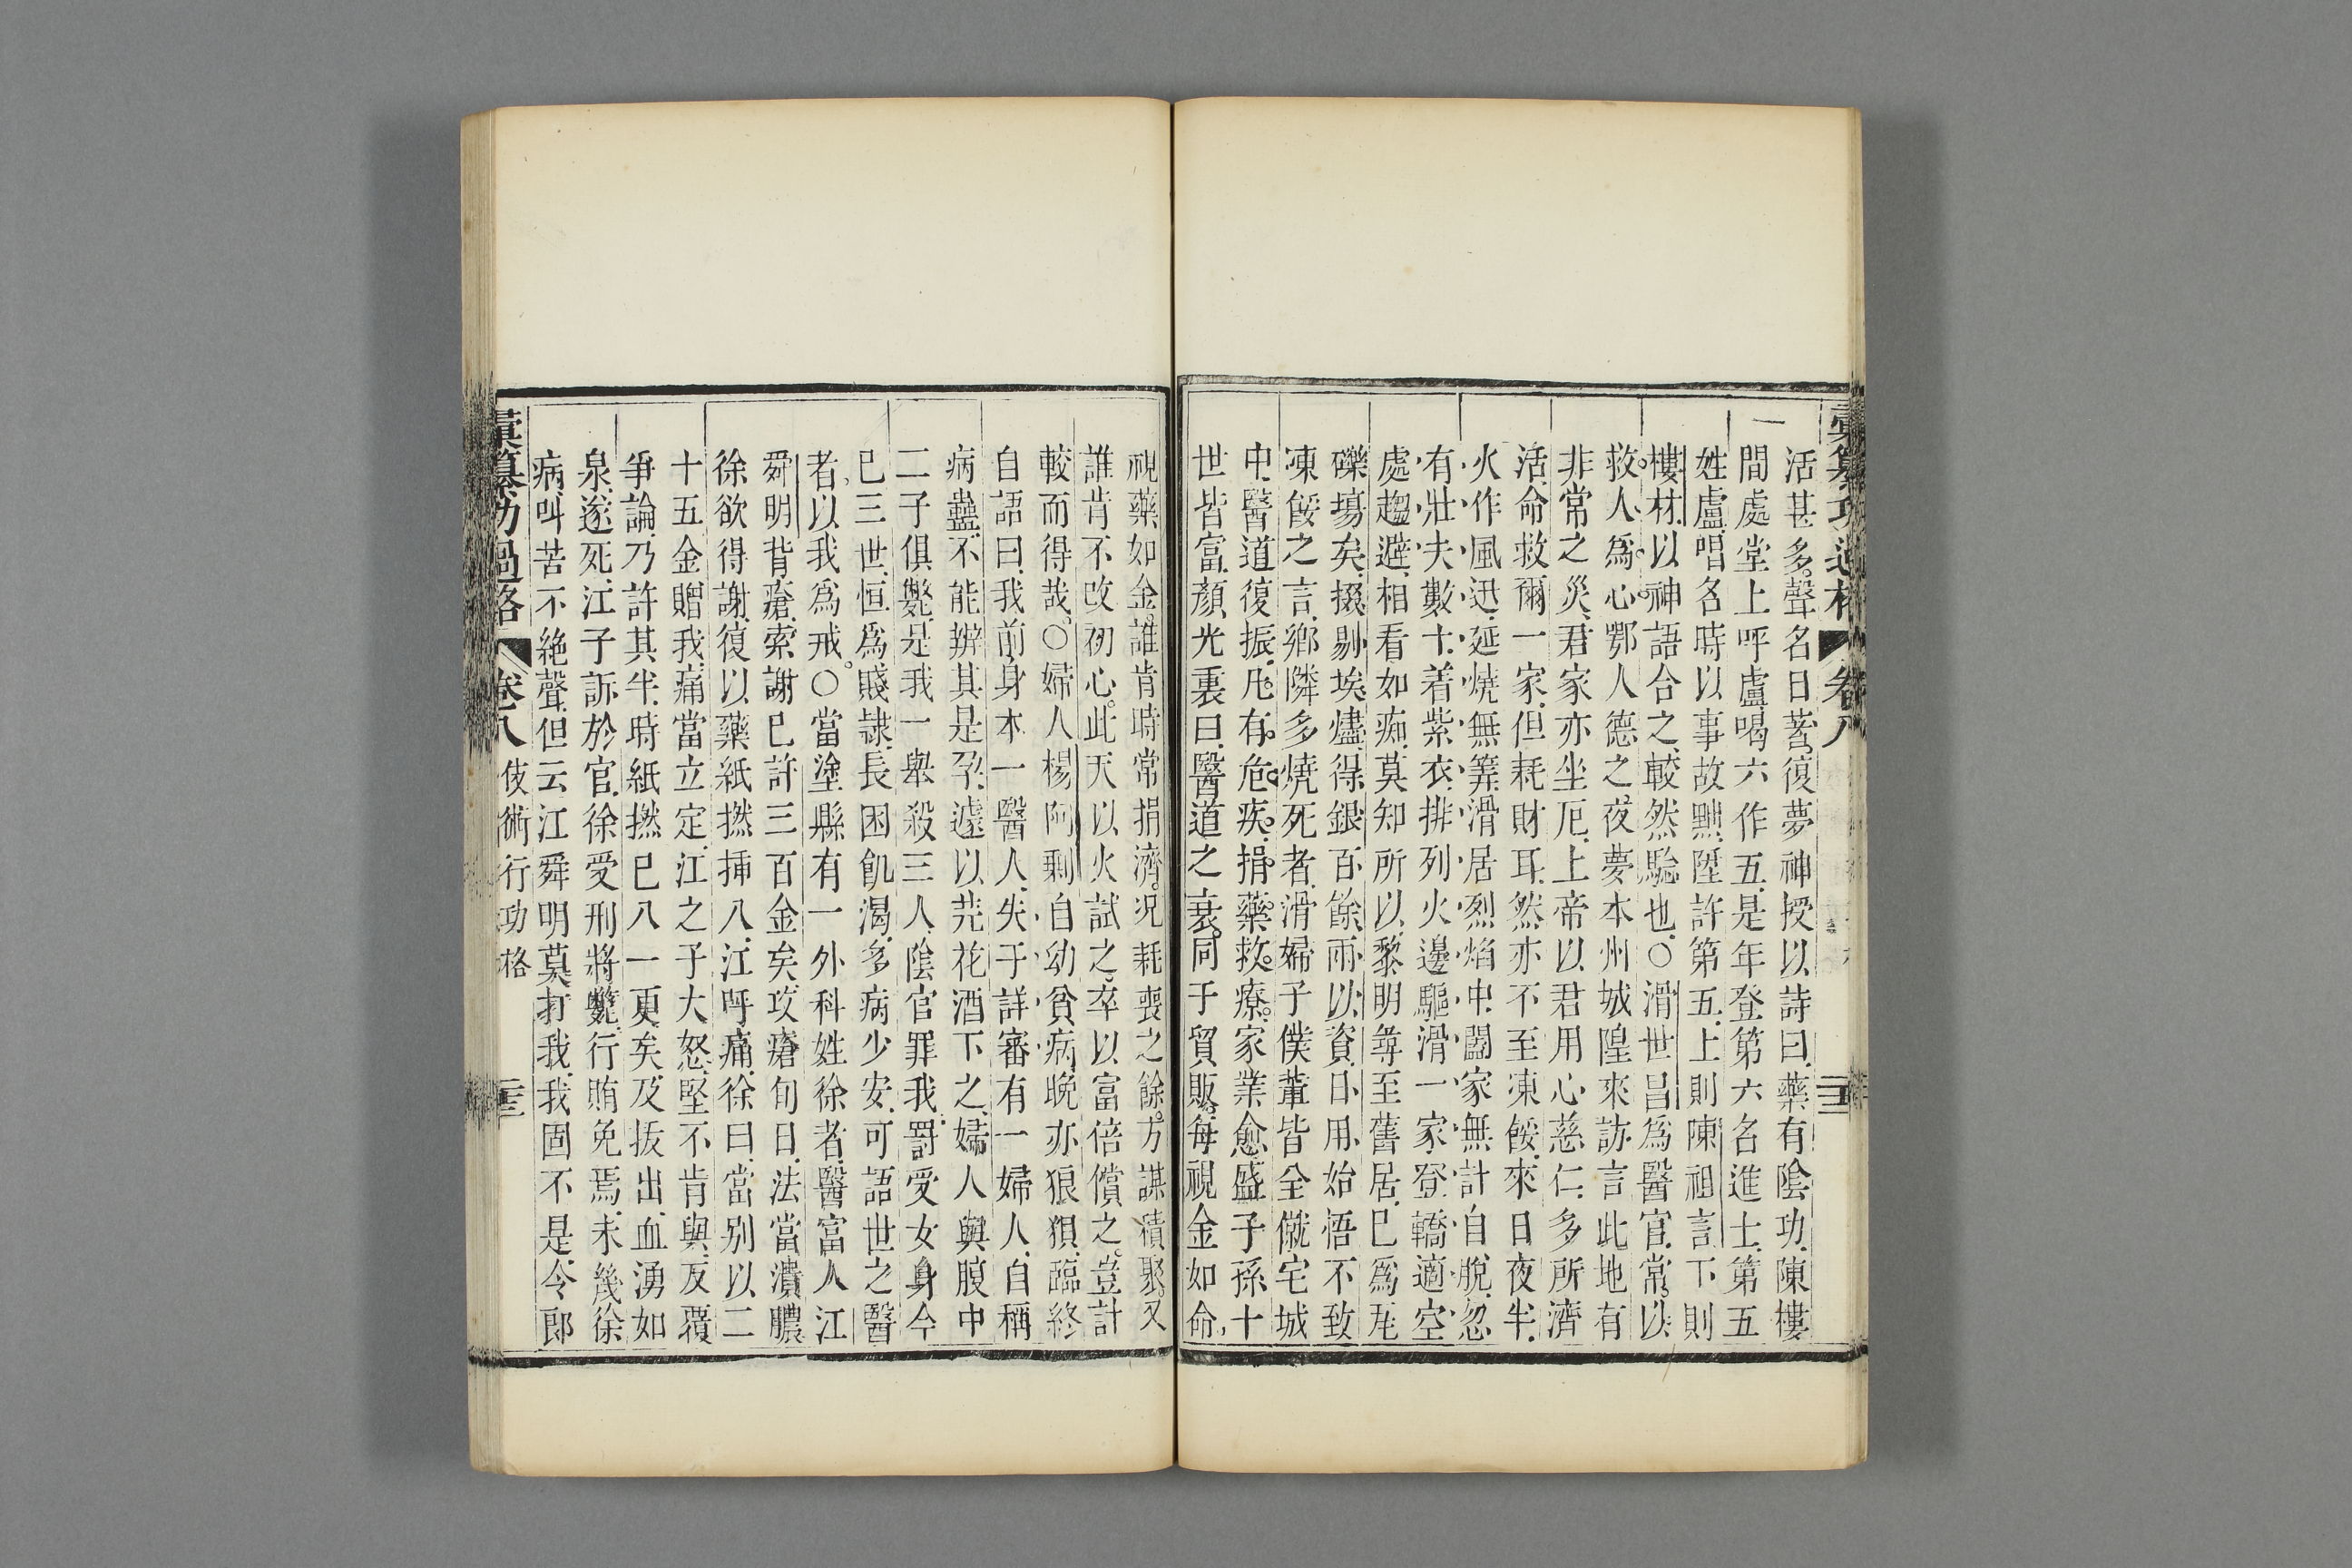 彙纂功過格 卷八
活甚多聲名日著復夢神授以詩曰藥有陰功陳樓
間處堂上呼盧喝六作五是年登第六名進士第五
姓盧唱名時以事故黜陞許第五上則陳祖言下則
樓材以神語合之較然騐也○滑世昌爲醫官常以
救人爲心鄂人德之夜夢本州城隍來訪言此地有
非常之災君家亦坐厄上帝以君用心慈仁多所濟
活命救爾一家但耗財耳然亦不至凍餒來日夜半
火作風迅延燒無筭滑居烈焰中闔家無計自脫忽
有壯夫數十着紫衣排列火邊驅滑一家登轎適空
處趨避相看如痴莫知所以黎明尋至舊居已爲瓦
礫塲矣掇剔埃燼得銀百餘兩以資日用始悟不致
凍餒之言鄉隣多燒死者滑婦子僕輩皆全僦宅城
中醫道復振凡有危疾捐藥救療家業愈盛子孫十
世皆富顏光裏曰醫道之衰同于貿販每視金如命
視藥如金誰肯時常捐濟况耗喪之餘方謀積聚又
誰肯不改初心此天以火試之卒以富倍償之豈計
較而得哉○婦人楊阿剩自幼貧病晚亦狼狽臨終
自語曰我前身本一醫人失于詳審有一婦人自稱
病蠱不能辨其是孕遽以芫花酒下之婦人與腹中
二子俱斃是我一舉殺三人陰官罪我罰受女身今
已三世恒爲賤隷長困飢渴多病少安可語世之醫
者以我爲戒○當塗縣有一外科姓徐者醫富人江
舜明背瘡索謝已許三百金矣攻瘡旬日法當潰膿
徐欲得謝復以藥紙撚揷八江呼痛徐曰當别以二
十五金贈我痛當立定江之子大怒堅不肯與反覆
爭論乃許其半時紙撚已八一更矣及拔出血湧如
泉遂死江子訴於官徐受刑將斃行賄免焉未幾徐
病叫苦不絶聲但云江舜明莫打我我固不是令郎
彙纂功過格 卷八 伎術行功格 二十三